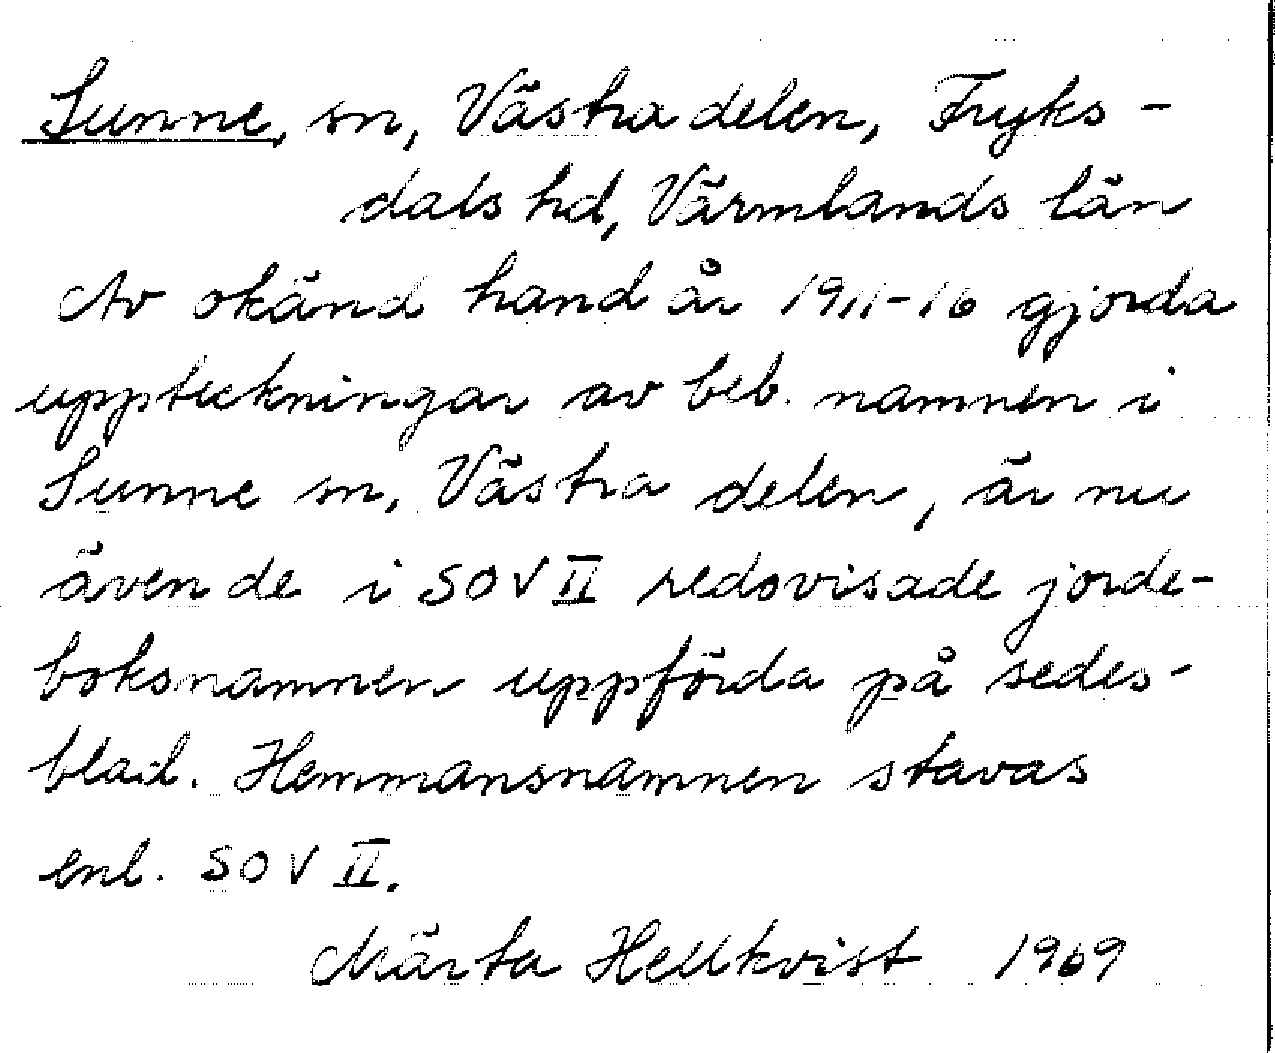 Sunne, sn, Västra delen, Fryks-
dals hd, Värmlands län
Av okänd hand år 1911-16 gjorda
uppteckningar av beb. namnen i
Sunne sn, Västra delen, är nu
även de i SOV II redovisade jorde-
boksnamnen uppförda på sedes-
blad. Hemmansnamnen stavas
enl. SOV II.
Märta Hellkvist 1969